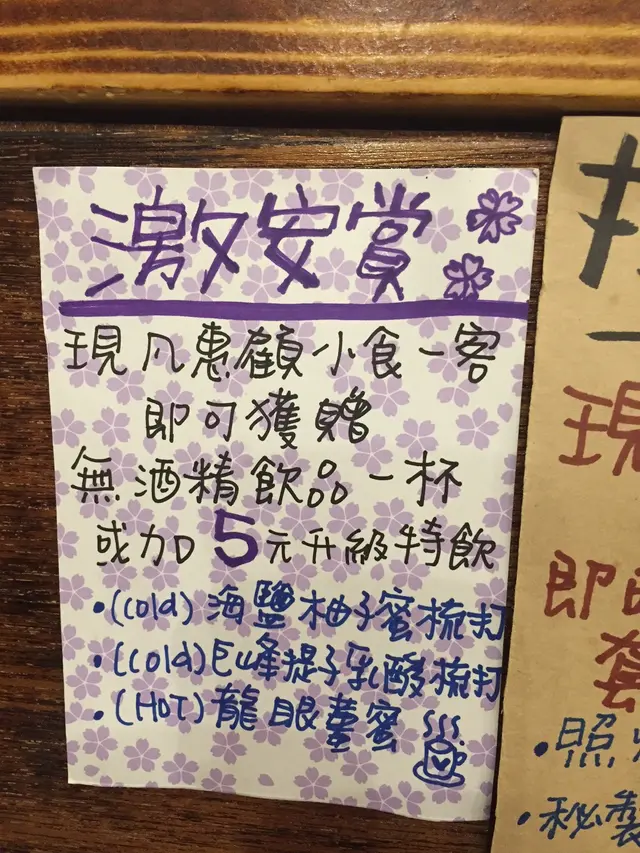 激安賞
現凡惠顧小食一客
即可獲贈
無酒精飲品一杯
或加5元升級特飲
•(Cold) 海鹽柚子蜜梳打
•(Cold)巨峰提子乳酸梳打
•(HOT)龍眼薑蜜
現
即
套
•照
•秘製